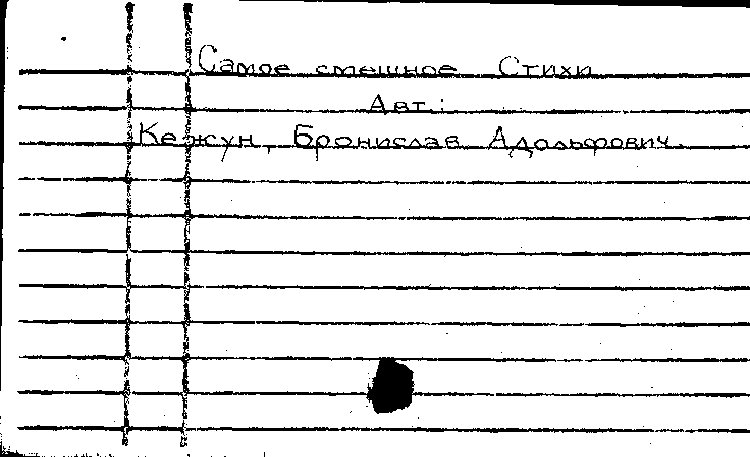 Самое смешное Стихи
Авт.:
Кежун, Бронислав Адольфович.